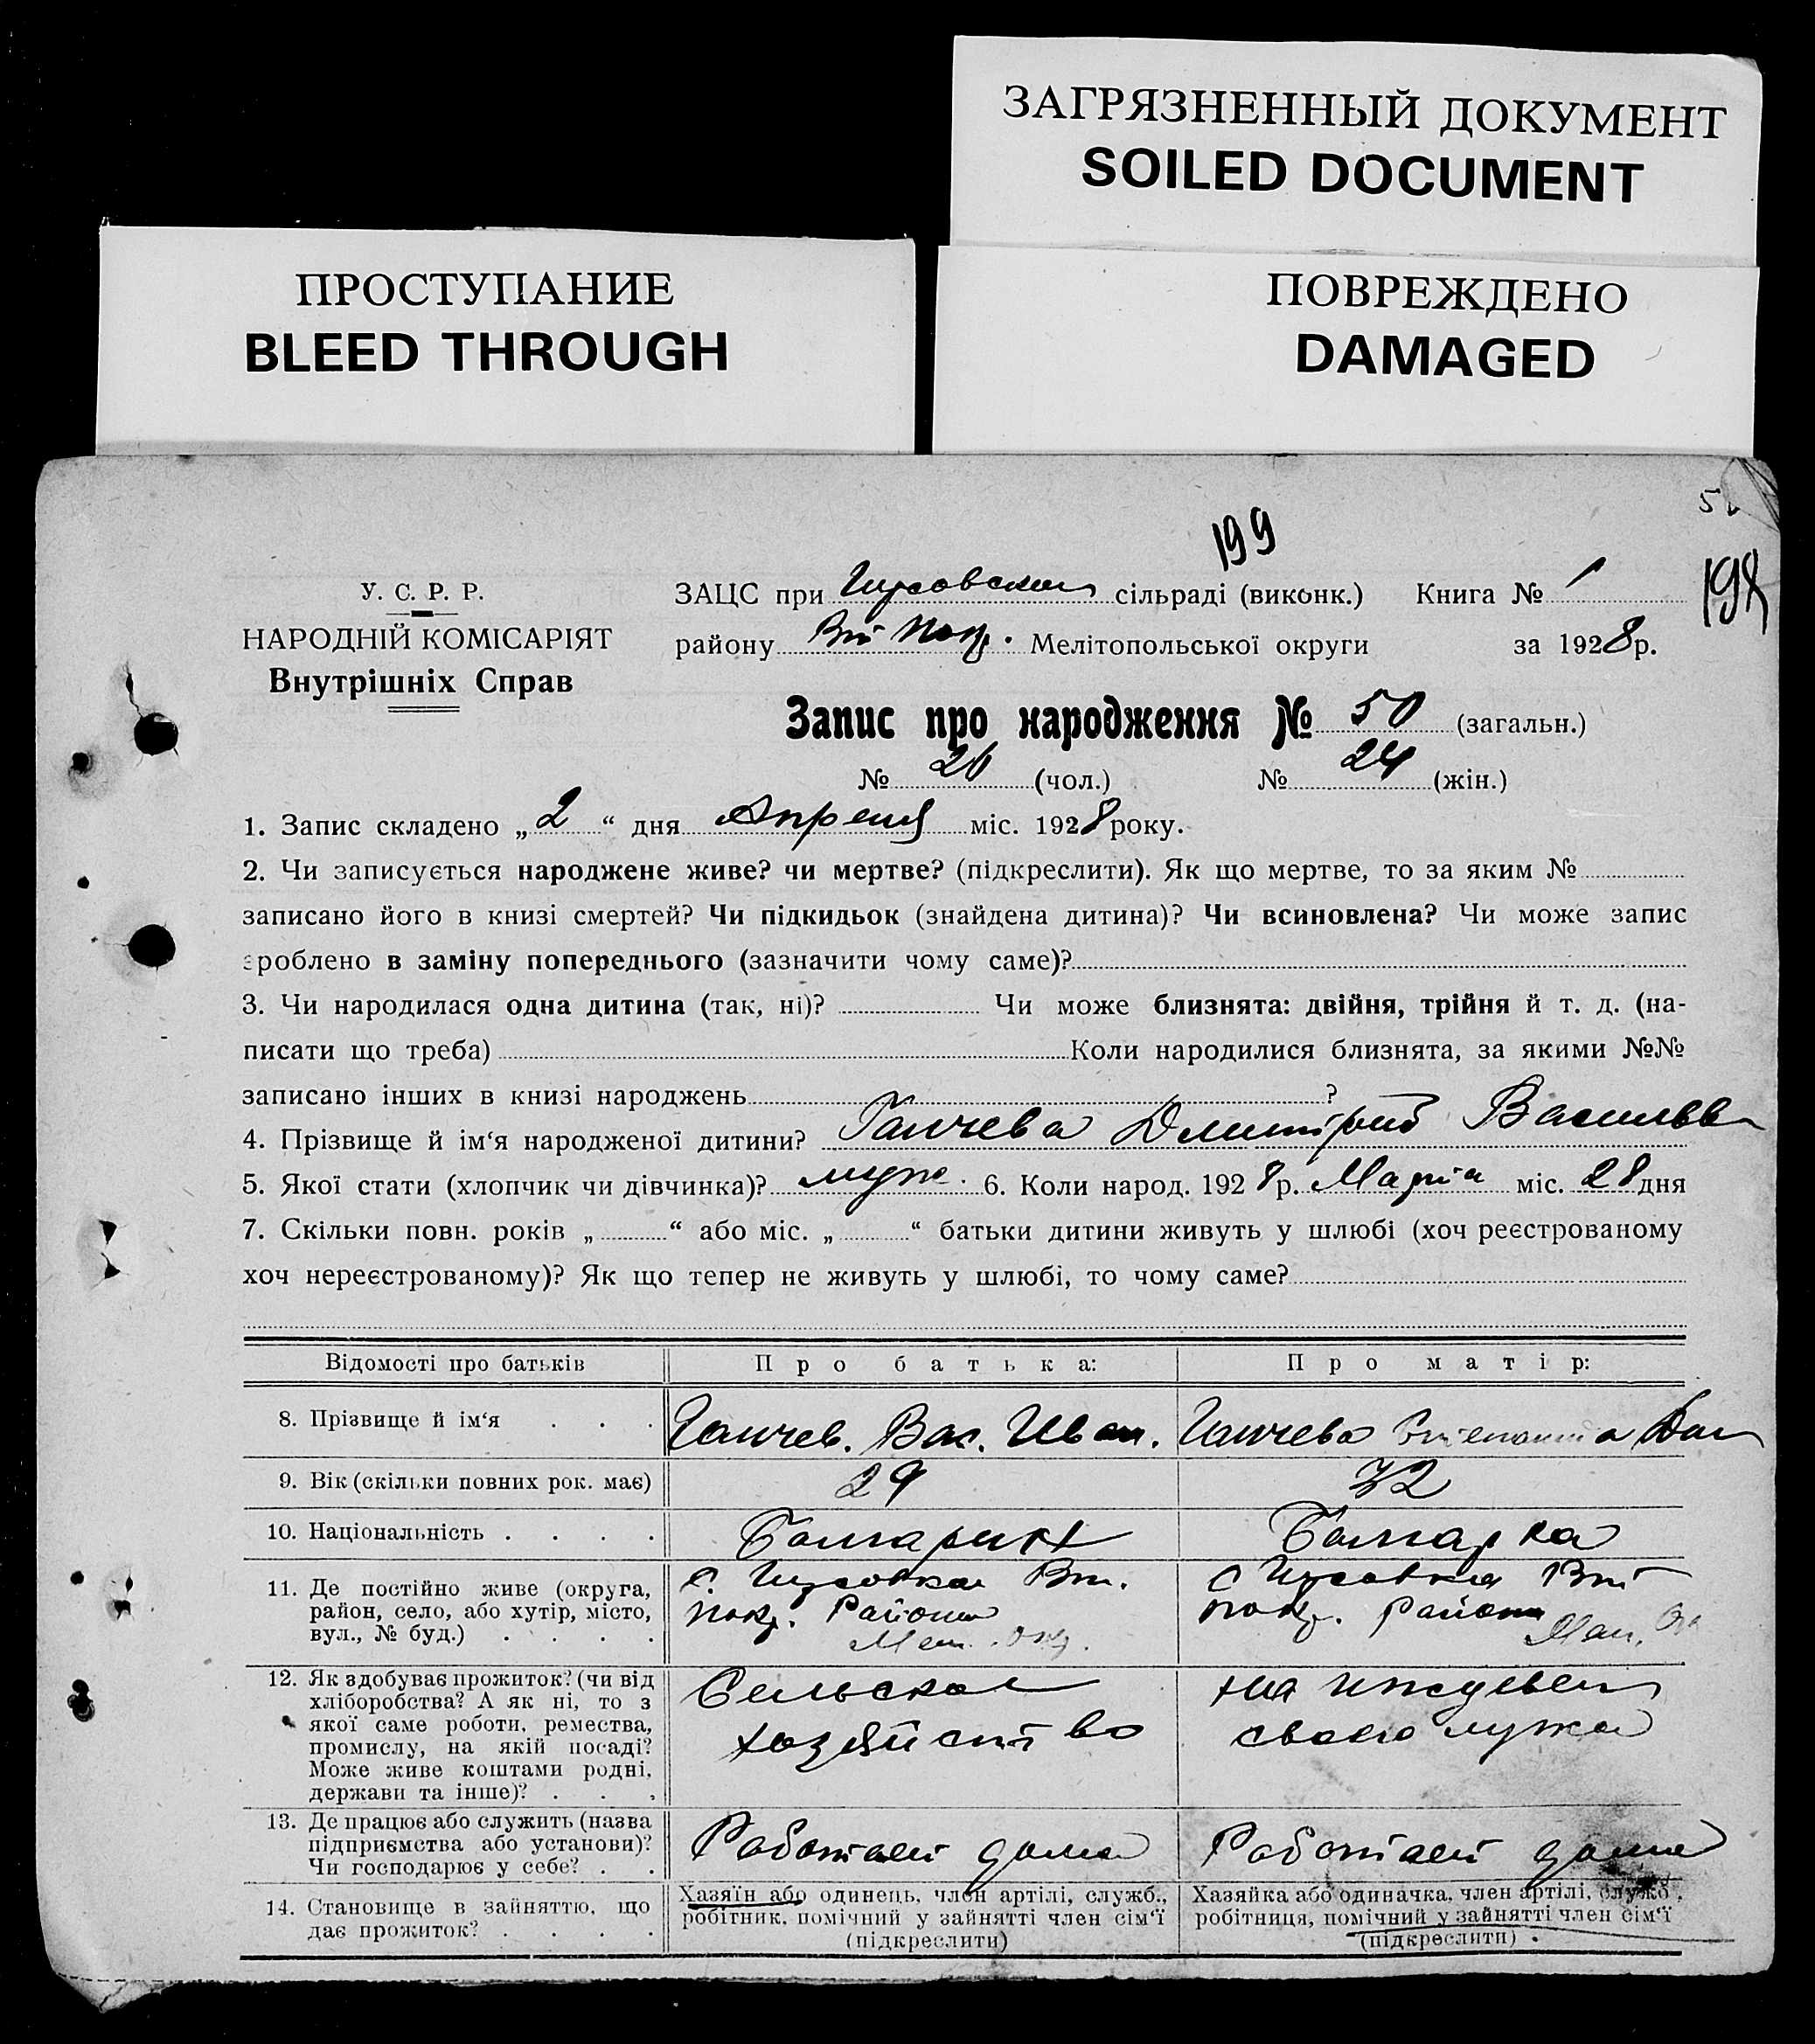 ЗАГРЯЗНЕННЫЙ ДОКУМЕНТ
SOILED DOCUMENT
ПРОСТУПАНИЕ
BLEED THROUGH
ПОВРЕЖДЕНО
DAMAGED
199
198
У. С. Р. Р.
НАРОДНІЙ КОМІСАРІЯТ
Внутрішніх Справ
ЗАЦС при сільраді (виконк.) Книга № 1
району Мелітопольської округи за 1928р.
Запис про народження № 50 (загальн.)
№ 26 (чол.) № 24 (жін.)
1. Запис складено „2“ дня Апреля міс. 1928 року.
2. Чи записується народжене живе? чи мертве? (підкреслити). Як що мертве, то за яким №
записано його в книзі смертей? Чи підкидьок (знайдена дитина)? Чи всиновлена? Чи може запис
зроблено в заміну попереднього (зазначити чому саме)?
3. Чи народилася одна дитина (так, ні)? Чи може близнята: двійня, трійня й т. д. (на-
писати що треба) Коли народилися близнята, за якими №№
записано інших в книзі народжень ?
4. Прізвище й ім‘я народженої дитини? Ганчева Дмитрий
5. Якої стати (хлопчик чи дівчинка)? муж. 6. Коли народ. 1928р. Марта міс. 28 дня
7. Скільки повн. років „ “ або міс. „ “ батьки дитини живуть у шлюбі (хоч реєстрованому
хоч нереєстрованому)? Як що тепер не живуть у шлюбі, то чому саме?
Відомості про батьків Про батька: Про матір:
8. Прізвище й ім‘я . . . Ганчев. Вас. Иван. Ганчева
9. Вік (скільки повних рок. має) 29 32
10. Національність . . . . Болгарин Болгарка
11. Де постійно живе (округа,
район, село, або хутір, місто,
вул., № буд.) . . . .
с. Вт.
покр. Района
Мел. окр.
с Вт
покр. Района
Мел.
12. Як здобуває прожиток? (чи від
хліборобства? А як ні, то з
якої саме роботи, ремества,
промислу, на якій посаді?
Може живе коштами родні,
держави та інше)? . . .
Сельское
хозяйство
на иждевен
своего мужа
13. Де працює або служить (назва
підприємства або установи)?
Чи господарює у себе? . .
Работает дома
Работает дома
14. Становище в зайняттю, що
дає прожиток? . . . .
Хазяїн або одинець, член артілі, служб.,
робітник, помічний у зайнятті член сім‘ї
(підкреслити)
Хазяйка або одиначка, член артілі, служб.,
робітниця, помічний у зайнятті член сім‘ї
(підкреслити)